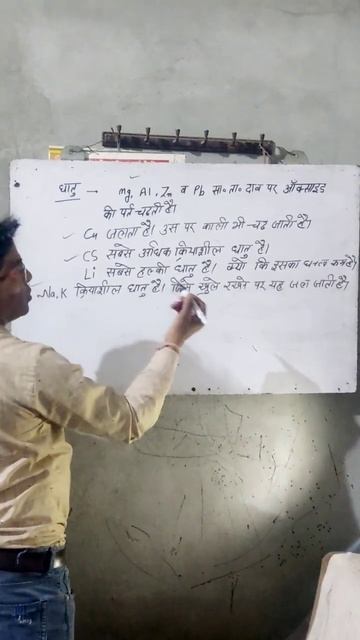 धातु → Mg, Al, Zn व Pb सा० ता० दाब पर ऑक्साइड
की पर्त चढ़ती है।
Cu जलता है। उस पर काली भी चढ़ जाती है।
Cs सबसे अधिक क्रियाशील धातु है।
Li सबसे हल्की धातु है। क्यो कि इसका घनत्व
Na, K क्रियाशील धातु है। खुले रखने पर यह जल जाती है।